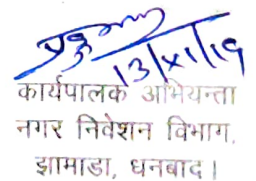 13/XI/19
कार्यपालक अभियन्ता
नगर निवेशन विभाग,
झामाडा, धनबाद।